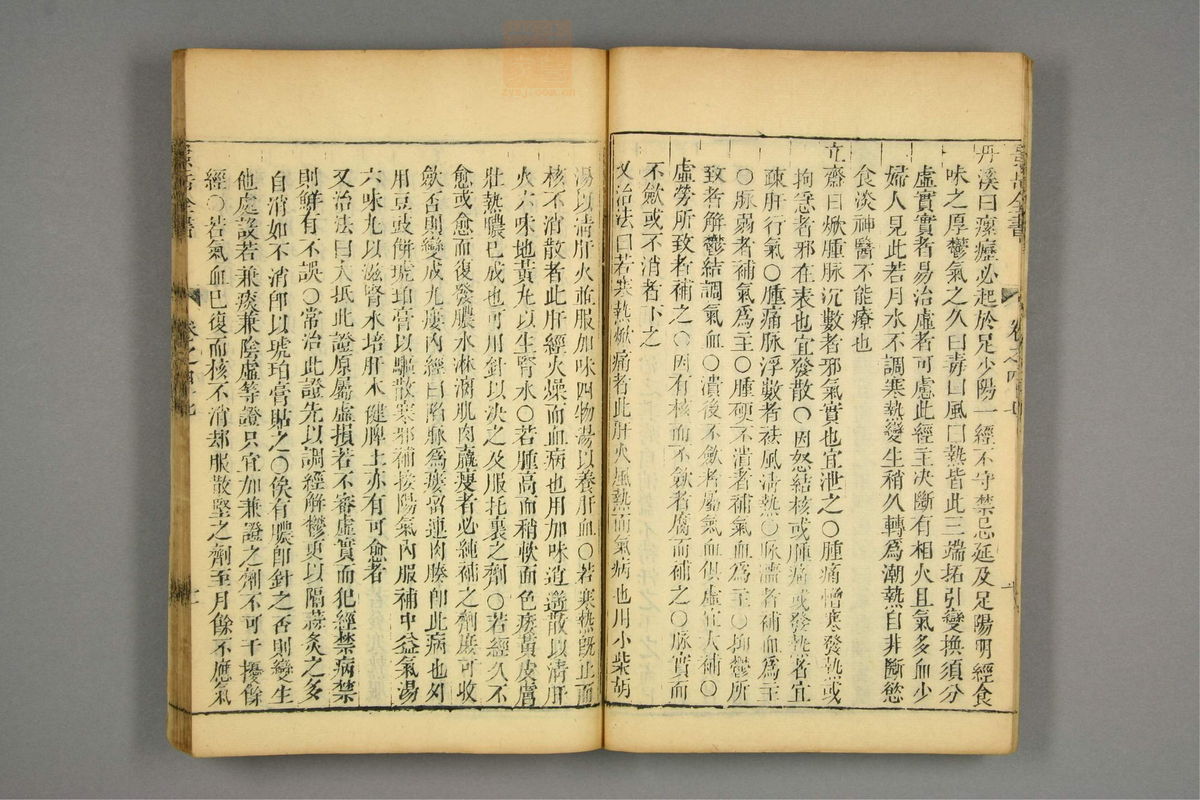 丹溪曰瘰癧必起於足少陽一經不守禁忌延及足陽明經食
味之厚鬱氣之久曰毒曰風曰熱皆此三端拓引變換須分
虛實實者易治虛者可慮此經主决斷有相火且氣多血少
婦人見此若月水不調寒熱變生稍久轉爲潮熱自非斷慾
食淡神醫不能療也
立齋曰焮腫脉沉數者邪氣實也宜泄之〇腫痛憎寒發熱或
拘急者邪在表也宜發散〇因怒結核或腫痛或發熱者宜
疎肝行氣〇腫痛脉浮數者祛風清熱〇脉濇者補血爲主
〇脉弱者補氣爲主〇腫硬不潰者補氣血爲主〇抑鬱所
致者解鬱結調氣血〇潰後不斂者屬氣血俱虛宜大補〇
虛勞所致者補之〇因有核而不斂者腐而補之〇脉實而
不斂或不消者下之
又治法曰若寒熱焮痛者此肝火風熱而氣病也用小柴胡
湯以清肝火並服加味四物湯以養肝血〇若寒熱旣止而
核不消散者此肝經火燥而血病也用加味逍遙散以清肝
火六味地黃丸以生腎水〇若腫高而稍軟面色痿黃皮膚
壯熱膿已成也可用針以決之及服托裏之劑〇若經久不
愈或愈而復發膿水淋漓肌肉羸瘦者必純補之劑庶可收
斂否則變成九瘻內經曰陷脉爲瘻留連肉腠卽此病也外
用豆豉餅琥珀膏以驅散寒邪補接陽氣內服補中益氣湯
六味丸以滋腎水培肝木健脾土亦有可愈者
又治法曰大抵此證原屬虛損若不審虛實而犯經禁病禁
則鮮有不誤〇常治此證先以調經解鬱更以隔蒜灸之多
自消如不消卽以琥珀膏貼之〇俟有膿卽針之否則變生
他處設若兼痰兼陰虛等證只宜加兼證之劑不可干擾餘
經〇若氣血已復而核不消却服散堅之劑至月餘不應氣
景岳全書
卷之四十七